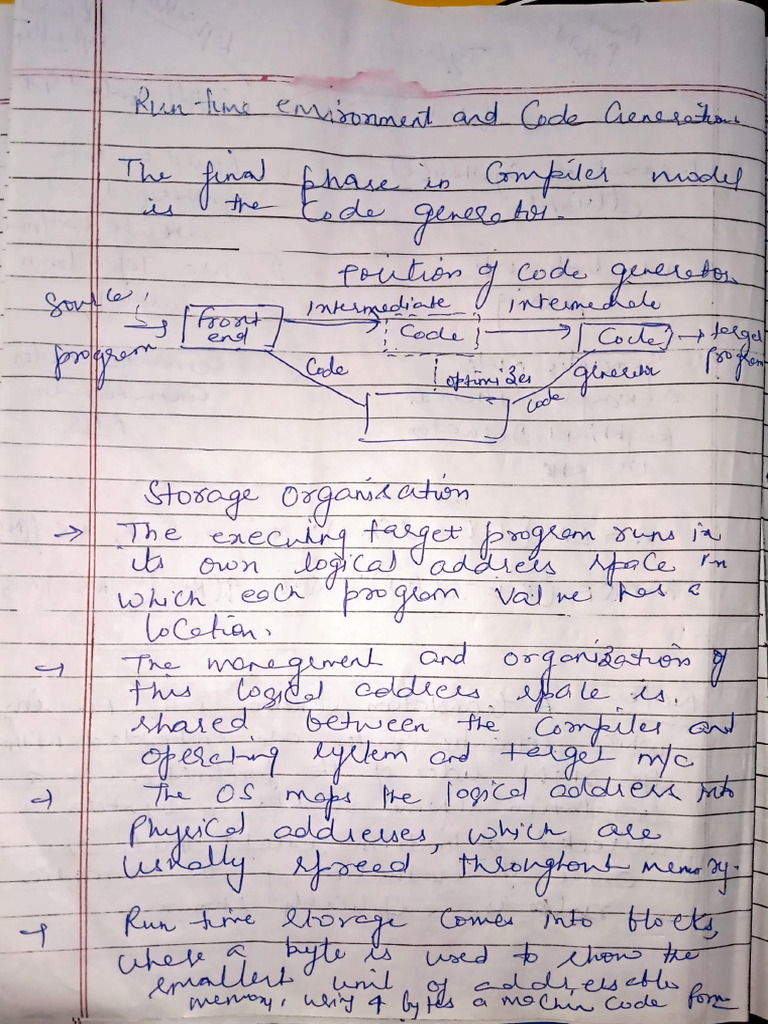 Run time environment and Code Generation.
The final phase in Compiler model
is the Code generator.
Position of Code generator
Source
program
Front
end
intermediate
Code
Code
optimizer
intermediate
code
Code
generator
target
program
Storage Organization
→ The executing target program runs in
its own logical address space in
which each program value has a
location.
→ The management and organization of
this logical address space is.
shared between the Compiler and
operating system and target m/c
→ The OS maps the logical address into
Physical addresses, which are
usually spread throughout memory.
→ Run time storage comes into blocks,
where a byte is used to show the
smallest unit of addressable
memory, using 4 bytes a machin code form